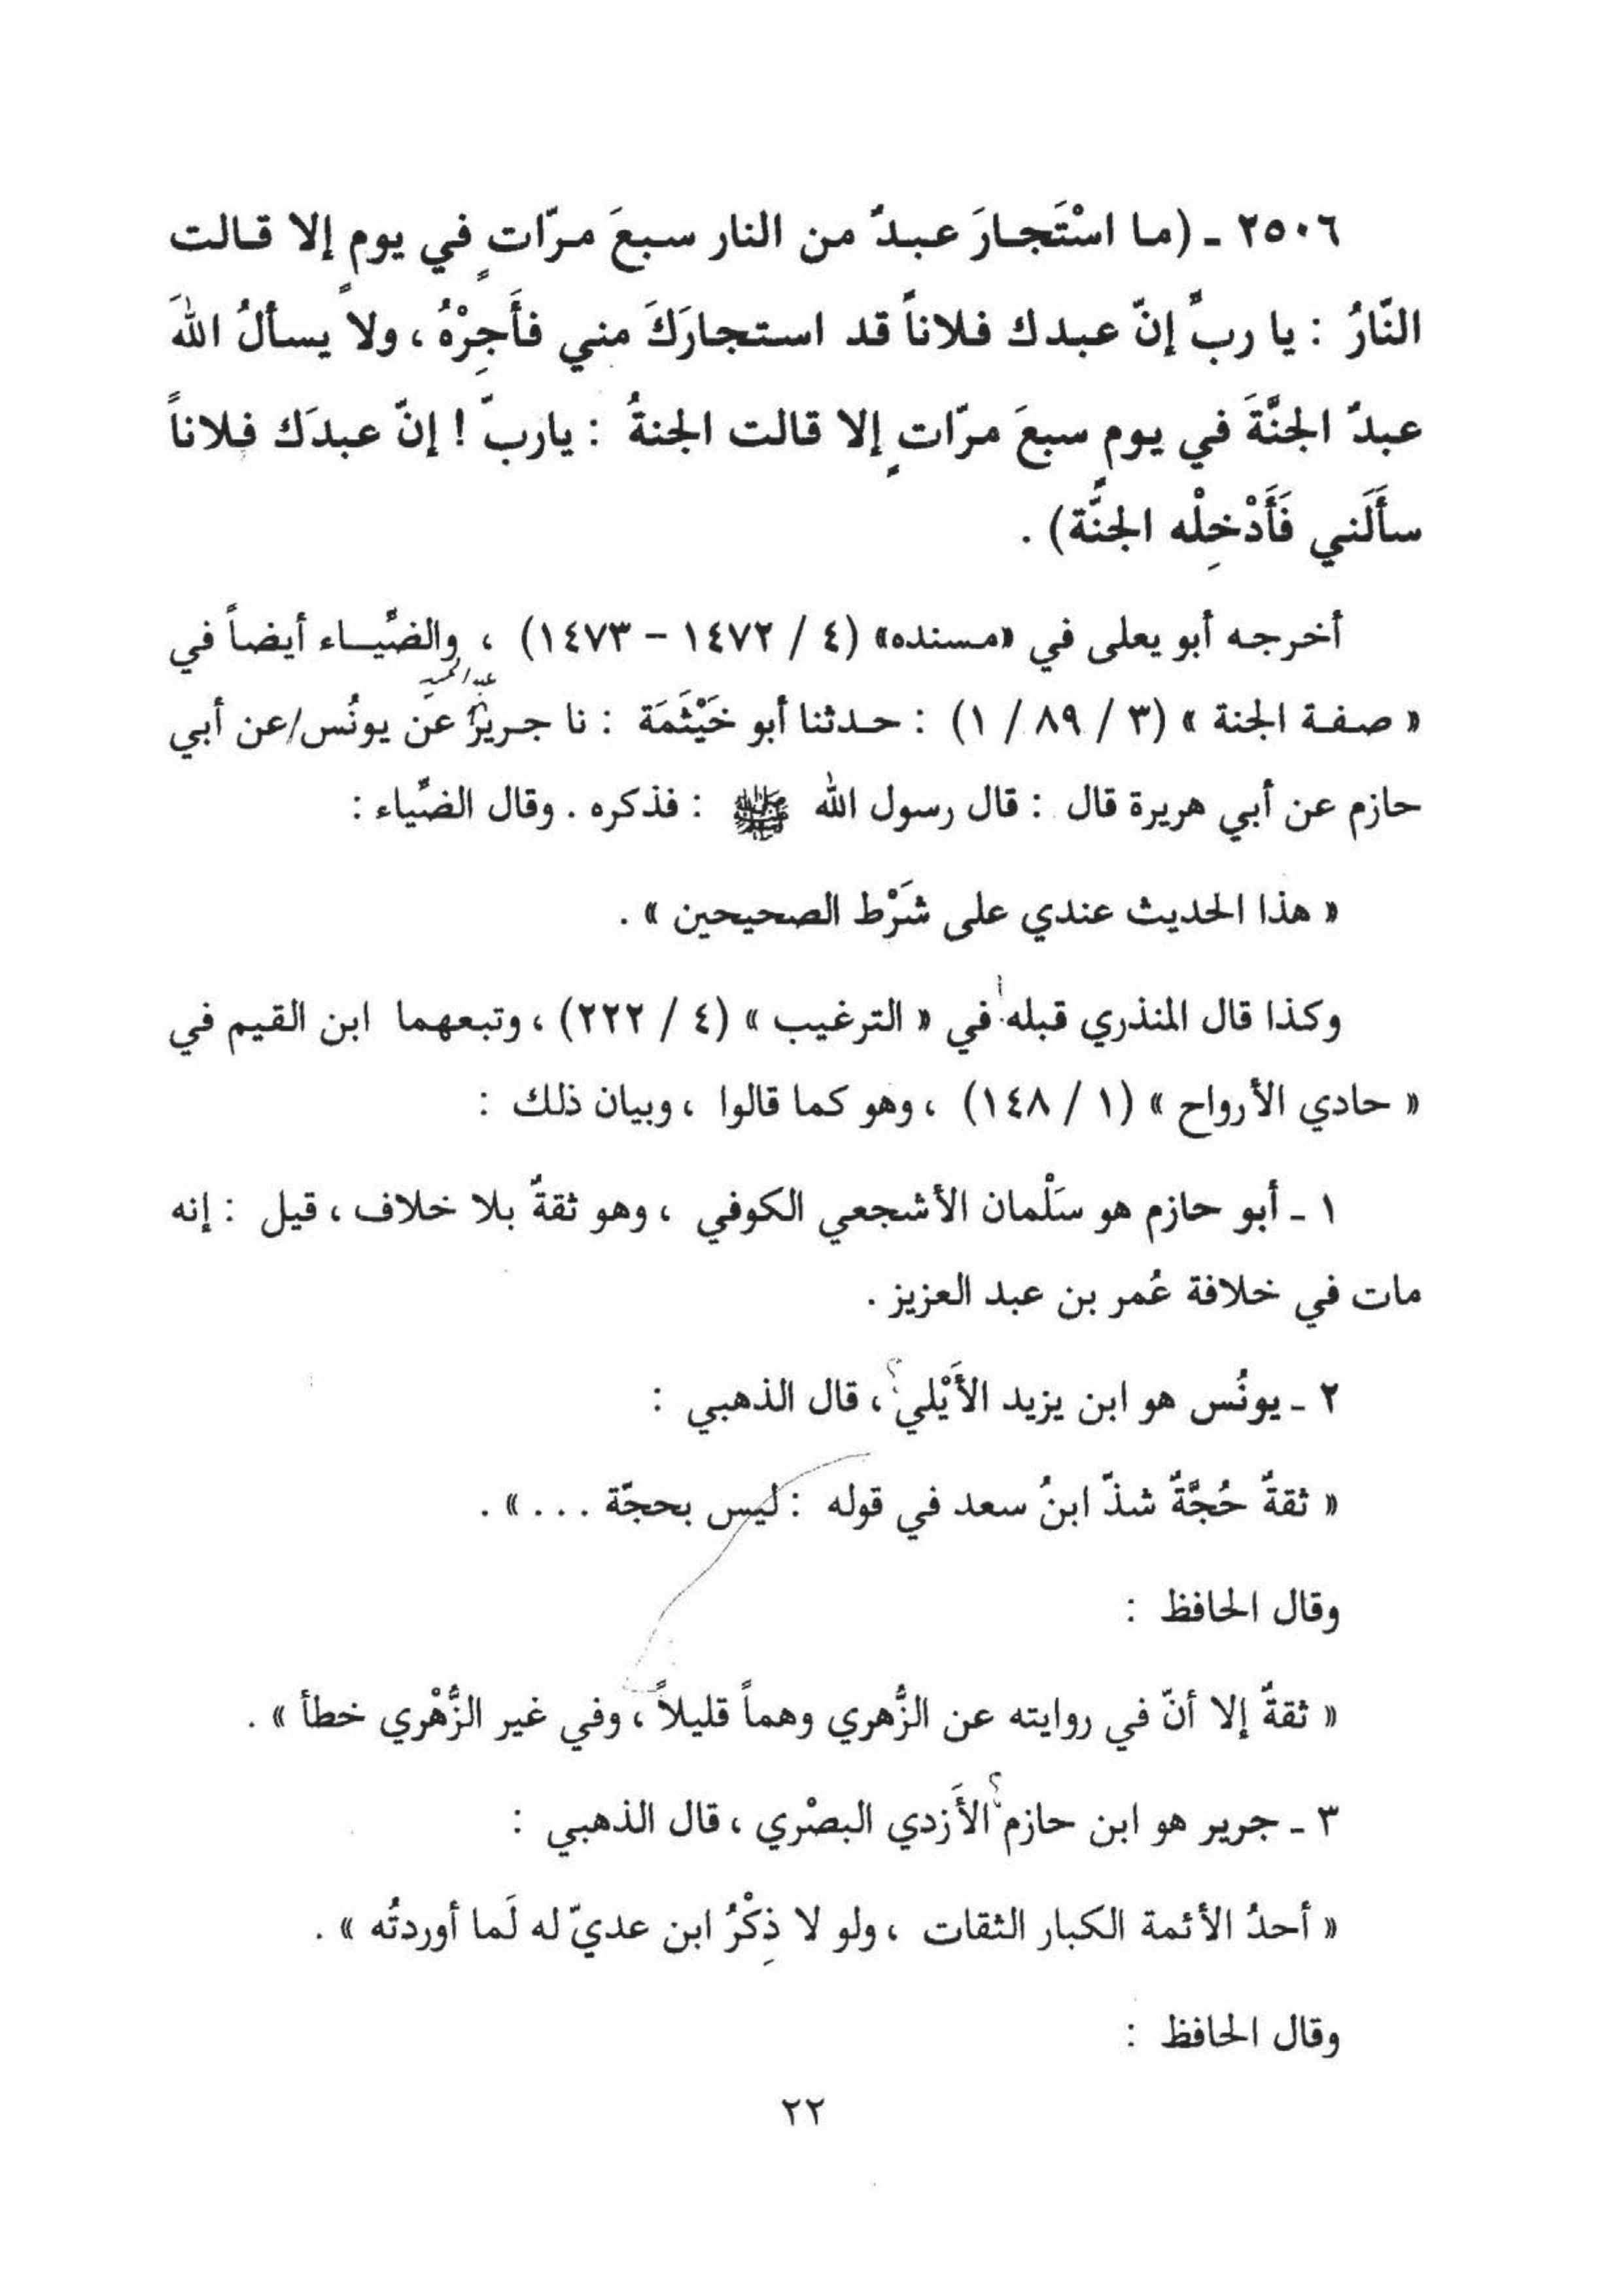 ٢٥٠٦ ـ (ما اسْتَجارَ عبدٌ من النار سبعَ مرّاتٍ في يومٍ إلا قالت
النّارُ : يا ربِّ إنّ عبدك فلاناً قد استجارَكَ مني فأَجِرْهُ ، ولا يسألُ اللهَ
عبدٌ الجنَّةَ في يومٍ سبعَ مرّاتٍ إلا قالت الجنةُ : ياربّ ! إنّ عبدَك فلاناً
سأَلَني فَأَدْخِلْه الجنَّة) .
أخرجه أبو يعلى في «مسنده» (٤ / ١٤٧٢ – ١٤٧٣) ، والضِّياء أيضاً في
« صفة الجنة » (٣ / ٨٩ / ١) : حدثنا أبو خَيْثَمَة : نا جرير عن يونُس/عن أبي
حازم عن أبي هريرة قال : قال رسول الله ﷺ : فذكره . وقال الضِّياء :
« هذا الحديث عندي على شَرْط الصحيحين » .
وكذا قال المنذري قبله في « الترغيب » (٤ / ٢٢٢) ، وتبعهما ابن القيم في
« حادي الأرواح » (١ / ١٤٨) ، وهو كما قالوا ، وبيان ذلك :
١ ـ أبو حازم هو سَلْمان الأشجعي الكوفي ، وهو ثقةٌ بلا خلاف ، قيل : إنه
مات في خلافة عُمر بن عبد العزيز .
٢ ـ يونُس هو ابن يزيد الأَيْلي ؟ ، قال الذهبي :
« ثقةٌ حُجَّةٌ شذّ ابنُ سعد في قوله : ليس بحجّة . . . » .
وقال الحافظ :
« ثقةٌ إلا أنّ في روايته عن الزُّهري وهماً قليلاً ، وفي غير الزُّهْري خطأ » .
٣ ـ جرير هو ابن حازم ؟ الأَزدي البصْري ، قال الذهبي :
« أحدُ الأئمة الكبار الثقات ، ولو لا ذِكْرُ ابن عديّ له لَما أوردتُه » .
وقال الحافظ :
٢٢